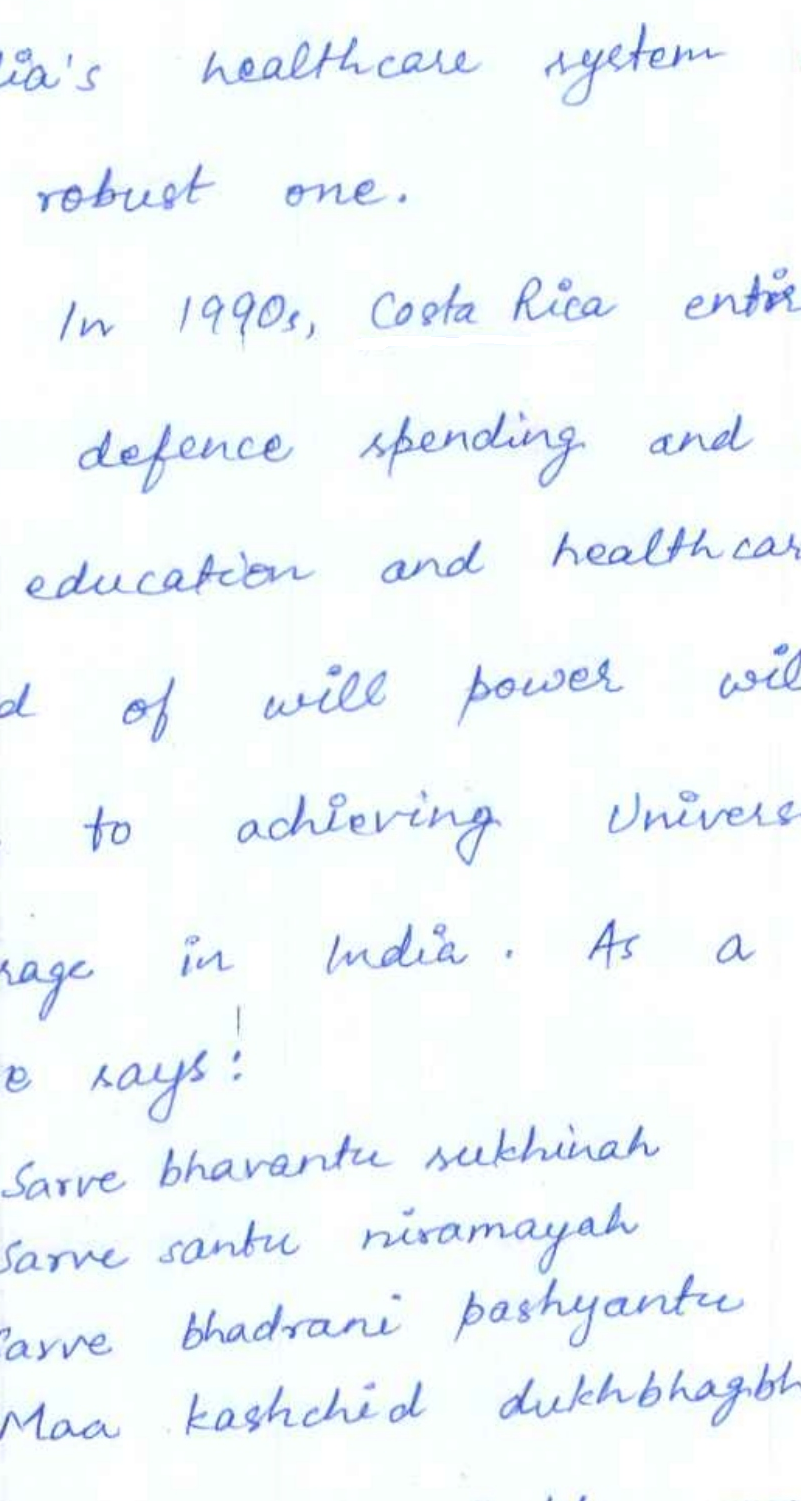 lia's healthcare system
robust one.
In 1990s, Costa Rica entir
defence spending and
education and healthcar
d of will power wil
to achieving Univers
rage in India. As a
e says:
Sarve bhavantu sukhinah
Sarve santu niramayah
Sarve bhadrani pashyantu
Maa kashchid dukhbhagbh